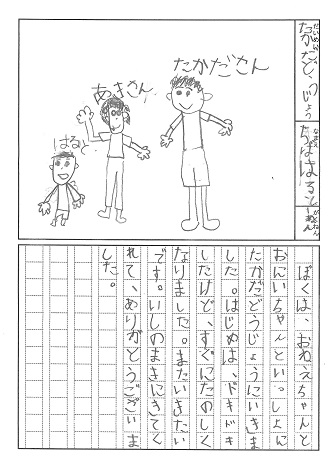 だいめい
たかだどうじょう
なまえ
はると
たかださん
あきさん
はると
ぼくは、おねえちゃんと
おにいちゃんといっしょに
たかだどうじょうにいきま
した。はじめは、ドキドキ
したけど、すぐにたのしく
なりました。またいきたい
です。いしのまきにきてく
れて、ありがとうございま
した。